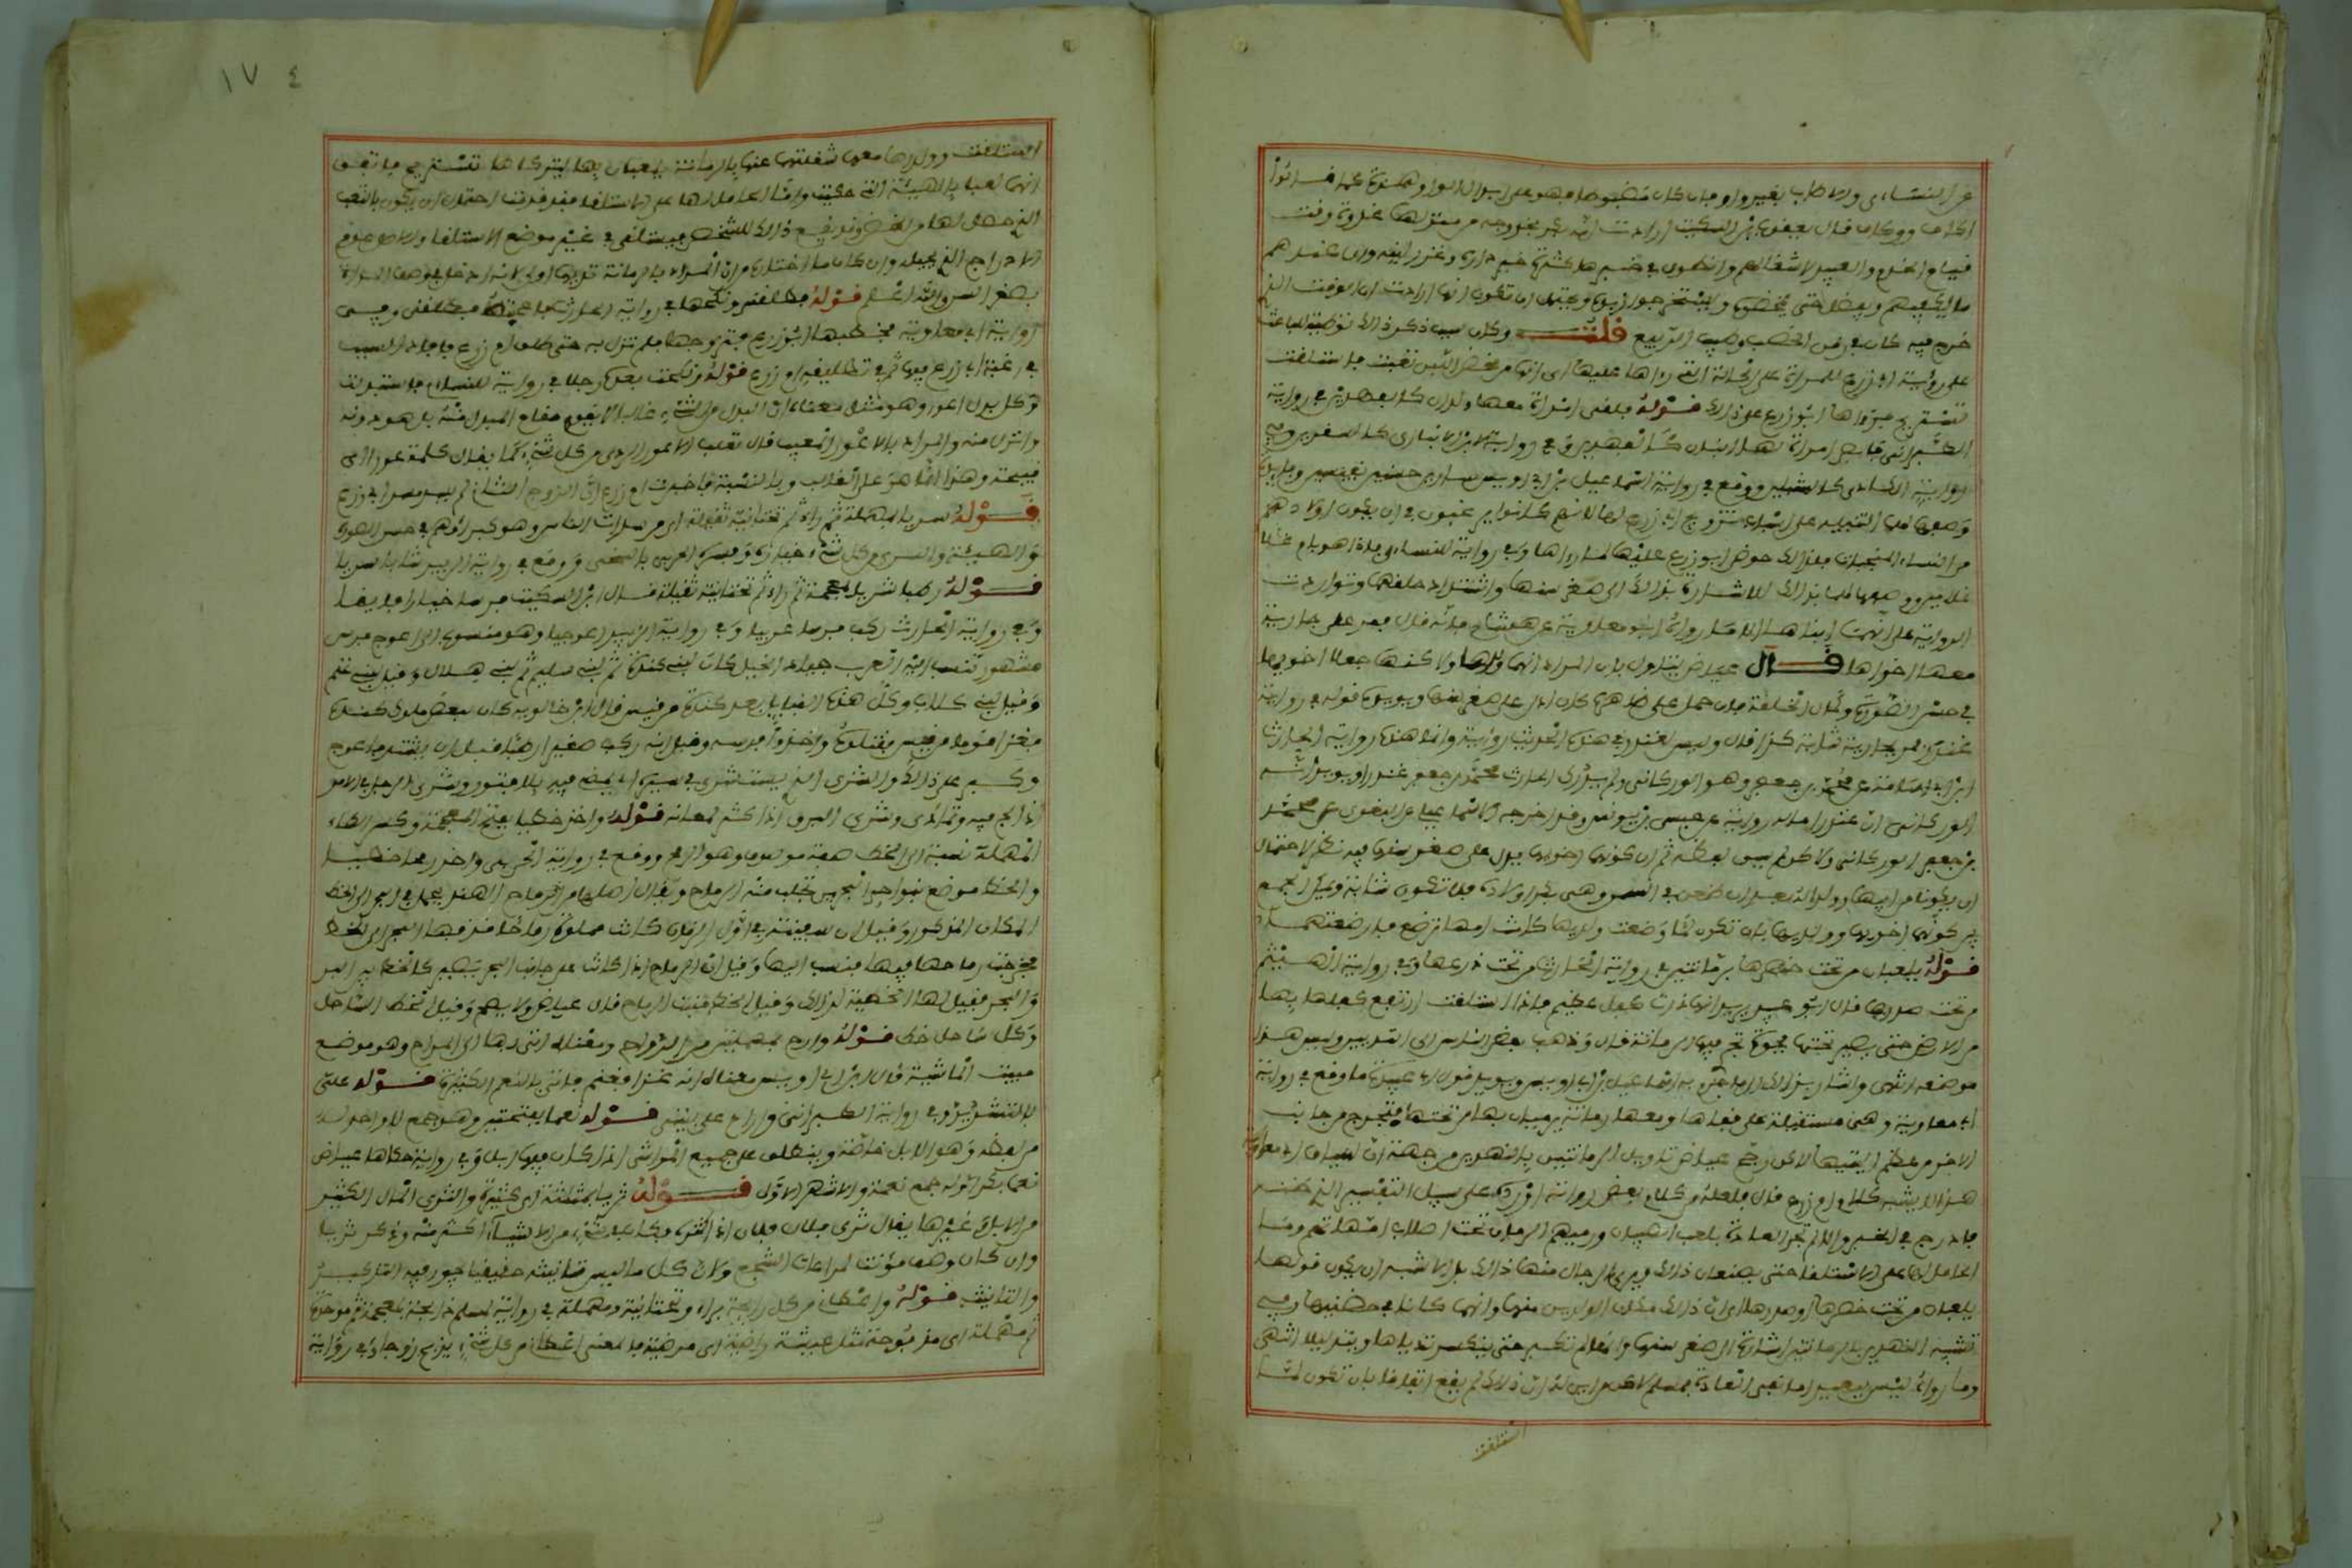 عن النسائي والأوطاب بغير واو فان كان مضبوطا فهو على ابدال الواو همزة كما قالوا
اكاف ووكاف قال يعقوب بن السكيت ارادت انه يبكر بخروجه من منزلها غدوة وقت
قيام الخدم والعبيد لاشغالهم وانطوى في خبرها كثرة خير داره وغزر لبنه وان عندهم
ما يكفيهم ويفضل حتى يمخضوه ويستخرجوا زبده ويحتمل ان تكون انها ارادت ان الوقت الذي
خرج فيه كان في زمن الخصب وطيب الربيع قلت وكان سبب ذكر ذلك توطئة للباعث
على رؤية ابي زرع للمراة على الحالة التي رءاها عليها اي انها من مخض اللبن تعبت فاستلقت
تستريح فرءاها ابو زرع على ذلك قوله فلقي امراة معها ولدان كالفهدين في رواية
الطبراني فابصر امراة لها ابنان كالفهدين وفي رواية ابن الانباري كالصقرين وفي
رواية الكاذي كالشبلين ووقع في رواية اسماعيل بن ابي اويس سارين حسنين نفيسين وفايدة
وصفها لهما التنبيه على اسباب تزويج ابي زرع لها لانهم كانوا يرغبون في ان يكون اولادهم
من النساء المنجبات فلذلك حرص ابو زرع عليها لما رءاها وفي رواية للنسائي فاذا هو بام غلا
غلامين ووصفها لهما بذلك للاشارة بذلك الى صغر سنها واشتداد خلقهما وتواردت
الرواية على انهما ابناها الا ما رواه ابو معاوية عن هشام فانه قال فمر على جارية
معها اخواها قال عياض يتاول بان المراد انهما ولداها ولاكنها جعلا اخويها
في حسن الصورة وكمال الخلقة فان حمل على ظاهره كان ادل على صغر سنها ويويده قوله في رواية
غندر فمر بجارية شابة كذا قال وليس لغندر في هذا الحديث رواية وانما هذه رواية الحارث
ابن ابي اسامة عن محمد بن جعفر وهو الوركاني ولم يدرك الحارث محمد بن جعفر غندرا ويويد انه
الوركاني ان غندرا ما له رواية عن عيسى بن يونس وقد اخرجه الاسماعيلي عن البغوي عن محمد
بن جعفر الوركاني ولاكن لم يسق لفظه ثم ان كونهما اخويها يدل على صغر سنها فيه نظر لاحتمال
ان يكونا من ابيها وولدا له بعد ان طعن في السن وهي بكر اولاده فلا تكون شابة ويمكن الجمع
بين كونهما اخويها وولديها بان تكون لما وضعت ولديها كانت امها ترضع فارضعتهما
قوله يلعبان من تحت خصرها برمانتين في رواية الحارث من تحت ذرعها وفي رواية الهيثم
من تحت صدرها قال ابو عبيد يريد انها ذات كفل عظيم فاذا استلقت ارتفع كفلها بها
من الارض حتى يصير تحتها فجوة تجري فيها الرمانة قال وذهب بعض الناس الى الثديين وليس هذا
موضعه انتهى واشار بذلك الى ما جزم به اسماعيل بن ابي اويس ويويد قول ابي عبيد ما وقع في رواية
ابي معاوية وهي مستلقية على قفاها ومعها رمانة يرميان بها من تحتها فتخرج من جانب
الاخر من عظم اليتيها لاكن رجح عياض تاويل الرمانتين بالنهدين من جهة ان سياق ابي معاوية
هذا لا يشبه كلام ام زرع قال فلعله من كلام بعض رواته اورده على سبيل التفسير الذي ظنه
فادرج في الخبر والا لم تجر العادة بلعب الصبيان ورميهم الرمان تحت اصلاب امهاتهم وما
الحامل لها على الاستلقا حتى يصنعان ذلك ويرى الرجال منها ذلك بل الاشبه ان يكون قولها
يلعبان من تحت خصرها او صدرها اي ان ذلك مكان الولدين منها وانهما كانا في حضنيها وفي
تشبيه النهدين بالرمانتين اشارة الى صغر سنها وانها لم تكبر حتى ينكسر ثدياها ويتدليا انتهى
وما رواه ليس ببعيد اما نفي العادة فمسلم لاكن من اين له ان ذلك لم يقع اتفاقا بان تكون لما
استلقت
١٧٤
استلقت وولداها معها شغلتهما عنها بالرمانة يلعبان بها ليتركاها تستريح فاتفق
انهما لعبا بالهيئة التي حكيت واما الحامل لها على الاستلقا فقد قدمت احتمال ان يكون بالتعب
الذي حصل لها من المخض وقد يقع ذلك للشخص فيستلقي في غير موضع الاستلقا والاصل عدم
الادراج الذي تخيله وان كان ما اختاره من ان المراد بالرمانة ثديها اولى لانه ادخل في وصف المراة
بصغر السن والله اعلم قوله فطلقني ونكحها في رواية الحارث فاعجبته فطلقني وفي
رواية ابي معاوية فخطبها ابو زرع فتزوجها فلم تزل به حتى طلق ام زرع فافاد السبب
في رغبة ابي زرع فيها ثم في تطليقه ام زرع قوله فنكحت بعده رجلا في رواية للنسائي فاستبدلت
وكل بدل اعور وهو مثل معناه ان البدل من الشيء غالبا لا يقوم مقام المبدل منه بل هو دونه
وانزل منه والمراد بالاعور المعيب قال ثعلب الاعور الردي من كل شيء كما يقال كلمة عورا اي
قبيحة وهذا انما هو على الغالب وبالنسبة فاخبرت ام زرع ان الزوج الثاني لم يسد مسد ابي زرع
قوله سريا بمهملة ثم راء ثم تحتانية ثقيلة اي من سراة الناس وهو كبراوهم في حسن الصورة
والهيئة والسري من كل شيء خياره وفسره الحربي بالسخي ووقع في رواية الزبير شابا سريا
قوله ركب شريا بمعجمة ثم راء ثم تحتانية ثقيلة قال ابن السكيت فرسا خيارا فايقا
وفي رواية الحارث ركب فرسا عربيا وفي رواية الزبير اعوجيا وهو منسوب الى اعوج فرس
مشهور تنسب اليه العرب جياد الخيل كان لبني كندة ثم لبني سليم ثم بني هلال وقيل لبني غنم
وقيل لبني كلاب وكل هذه القبايل بعد كندة من قيس قال ابن خالويه كان لبعض ملوك كندة
فغزا قوما من قيس فقتلوه واخذوا فرسه وقيل انه ركب صغيرا رطبا قبل ان يشتد فاعوج
وكبر على ذلك والشري الذي يستشري في سيره اي يمضي فيه بلا فتور وشرى الرجل في الامر
اذا لج فيه وتمادى وشرى البرق اذا كثر لمعانه قوله واخذ خطيا بفتح المعجمة وكسر الطاء
المهملة نسبة الى الخط صفة موصوف وهو الرمح ووقع في رواية الحارث واخذ رمحا خطيا
والخط موضع بنواحي البحرين تجلب منه الرماح ويقال اصلها من الرماح الهند يحمل في البحر الى الخط
المكان المذكور وقيل ان سفينة في اول الزمان كانت مملوة رماحا قذفها البحر الى الخط
فخرجت رماحها فيها فنسبت اليها وقيل ان الرماح اذا كانت على جانب البحر تصير كالخط بين البر
والبحر فقيل لها الخطية لذلك وقيل الخط منبت الرماح قال عياض ولا يصح وقيل الخط الساحل
وكل ساحل خط قوله واراح بمهملتين من الرواح ومعناه انى ردها الى المراح وهو موضع
مبيت الماشية قال ابن ابي اويس معناه انه غزا فغنم فاتى بالنعم الكثيرة قوله علي
بالتشديد وفي رواية الطبراني واراح على بيتي قوله نعما بفتحتين وهو جمع لا واحد له
من لفظه وهو الابل خاصة ويطلق على جميع المواشي اذا كان فيها ابل وفي رواية حكاها عياض
نعما بكسر اوله جمع نعمة والاشهر الاول قوله ثريا بمثلثة اي كثيرة والثري المال الكثير
من الابل وغيرها يقال ثرى فلان فلان اذا كثره فكان في شيء من الاشياء اكثر منه وذكر ثريا
وان كان وصف مؤنث لمراعات السجع ولان كل ما ليس تانيثه حقيقيا يجوز فيه التذكير
والتانيث قوله واعطاني من كل رايحة براء وتحتانية ومهملة في رواية لمسلم ذابحة بمعجمة ثم موحدة
ثم مهملة اي مذبوحة مثل عيشة راضية اي مرضية فالمعنى اعطاني من كل شيء يذبح زوجا وفي رواية